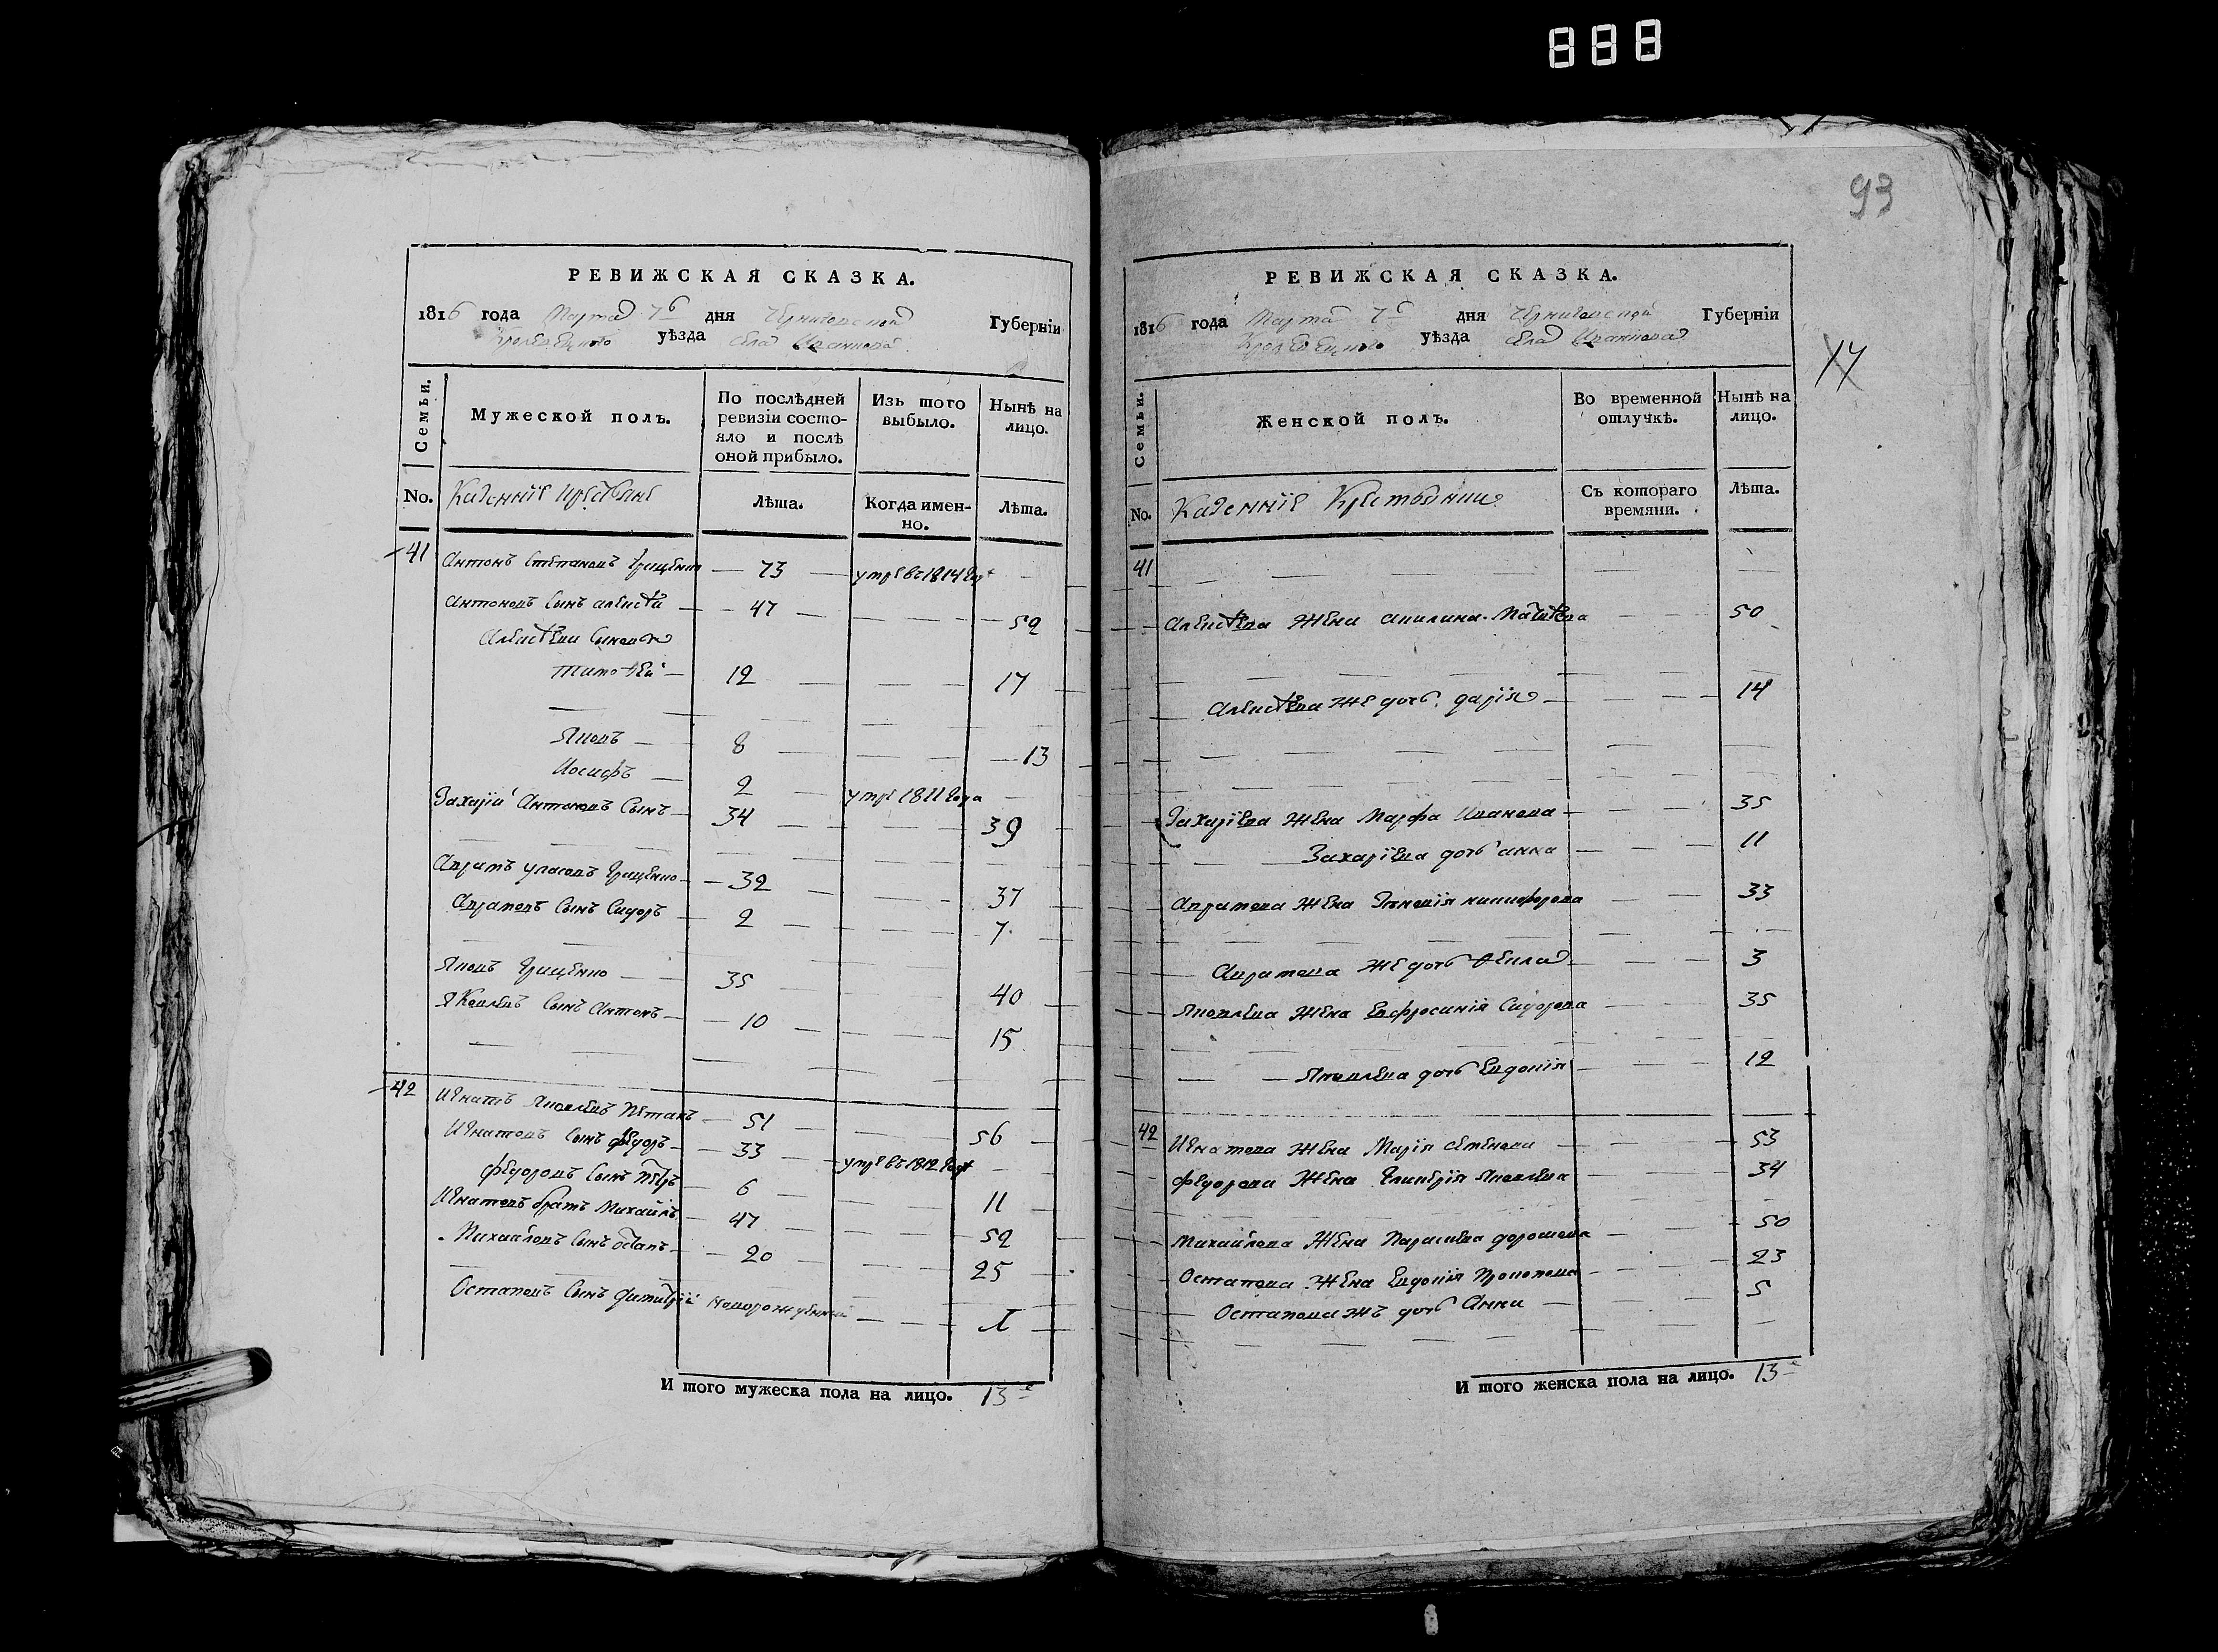 888
93
РЕВИЖСКАЯ СКАЗКА.
1816 года Марта 7 дня Черниговской Губерніи
Кролевецкого уѣзда села Иванкова
Семьи.
Мужеской полъ.
По послѣдней ревизіи состояло и послѣ оной прибыло.
Изъ того выбыло.
Нынѣ на лицо.
No.
Казенніе
Лѣта.
Когда именно.
Лѣта.
41 Антонъ Степановъ Грищенко — 73 — умре въ 1814 году
Антоновъ сынъ Алексѣй — 47 — 52
Алексѣеви сыновя
Тимоѳей — 12 — 17
Яковъ — 8 — 13
Иосифъ — 2 умре 1811 года
Захарій Антоновъ сынъ — 34 — 39
Грищенко — 32 — 37
сынъ Сидоръ — 2 — 7
Яковъ Грищенко — 35 — 40
Яковлевъ сынъ Антонъ — 10 — 15
42 Игнатъ Яковлевъ — 51 — 56
Игнатовъ сынъ Федоръ — 33 — умре въ 1812 году
Федоровъ сынъ Петръ — 6 — 11
Игнатовъ братъ Михайло — 47 — 52
Михайловъ сынъ Остапъ — 20 — 25
Остаповъ сынъ Димитрій новорожденній
И того мужеска пола на лицо. 13
РЕВИЖСКАЯ СКАЗКА.
1816 года Марта 7 дня Черниговской Губерніи
Кролевецкого уѣзда села Иванкова
14
Семьи.
Женской полъ.
Во временной отлучкѣ.
Нынѣ на лицо.
No.
Казенніе Крестьянки
Съ котораго времяни.
Лѣта.
41
Алексѣева жена Акилина — 50
Алексѣева же дочь Дарія — 14
Захаріева жена Марфа Иванова — 35
Захаріева дочь Анна — 11
жена Никифорова — 33
же дочь Ѳекла — 3
Яковлева жена Евфросинія Сидорова — 35
Яковлева дочь Евдокія — 12
42 Игнатова жена Марія — 53
Федорова жена Гликерія Яковлева — 34
Михайлова жена Параскева — 50
Остапова жена Евдокія Прокопова — 23
Остапова жъ дочь Анна — 5
И того женска пола на лицо. 13